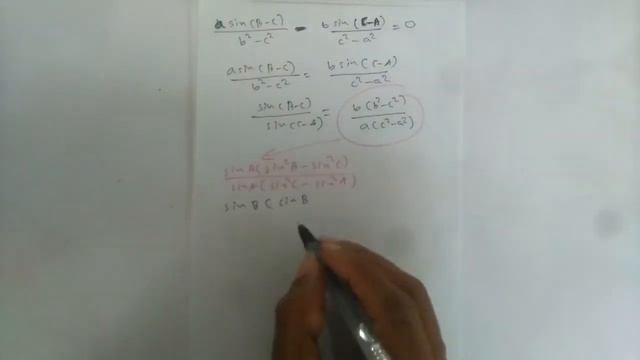 a sin(B-C)/b²-c² - b sin(C-A)/c²-a² = 0
a sin(B-C)/b²-c² = b sin(C-A)/c²-a²
sin(B-C)/sin(C-A) = b(b²-c²)/a(c²-a²)
sin B(sin²B-sin²C)/sin A(sin²C-sin²A)
sin B ( sin B